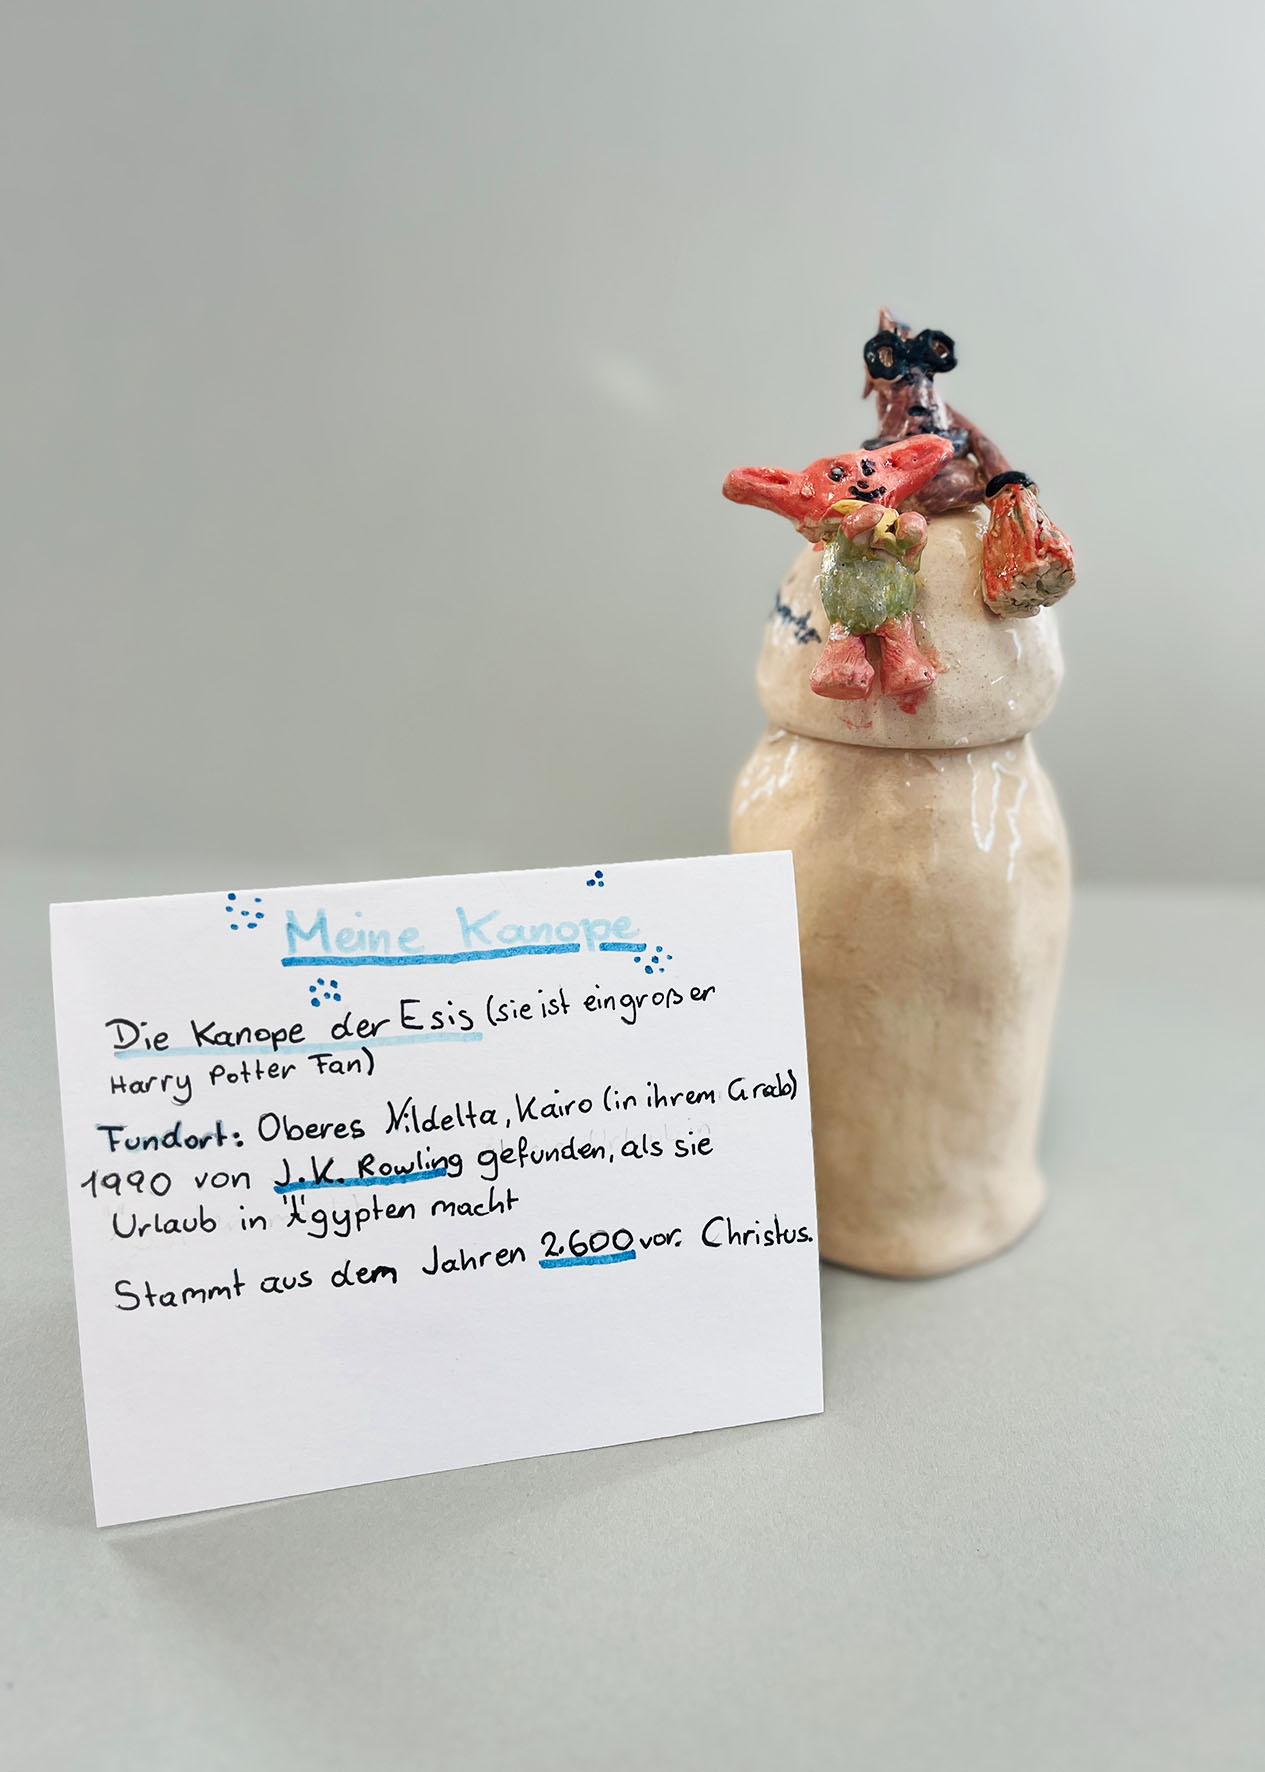 Meine Kanope
Die Kanope der Esis (sie ist ein großer
Harry Potter Fan)
Fundort: Oberes Nildelta, Kairo (in ihrem Grab)
1990 von J.K. Rowling gefunden, als sie
Urlaub in Ägypten macht
Stammt aus dem Jahren 2.600 vor. Christus.